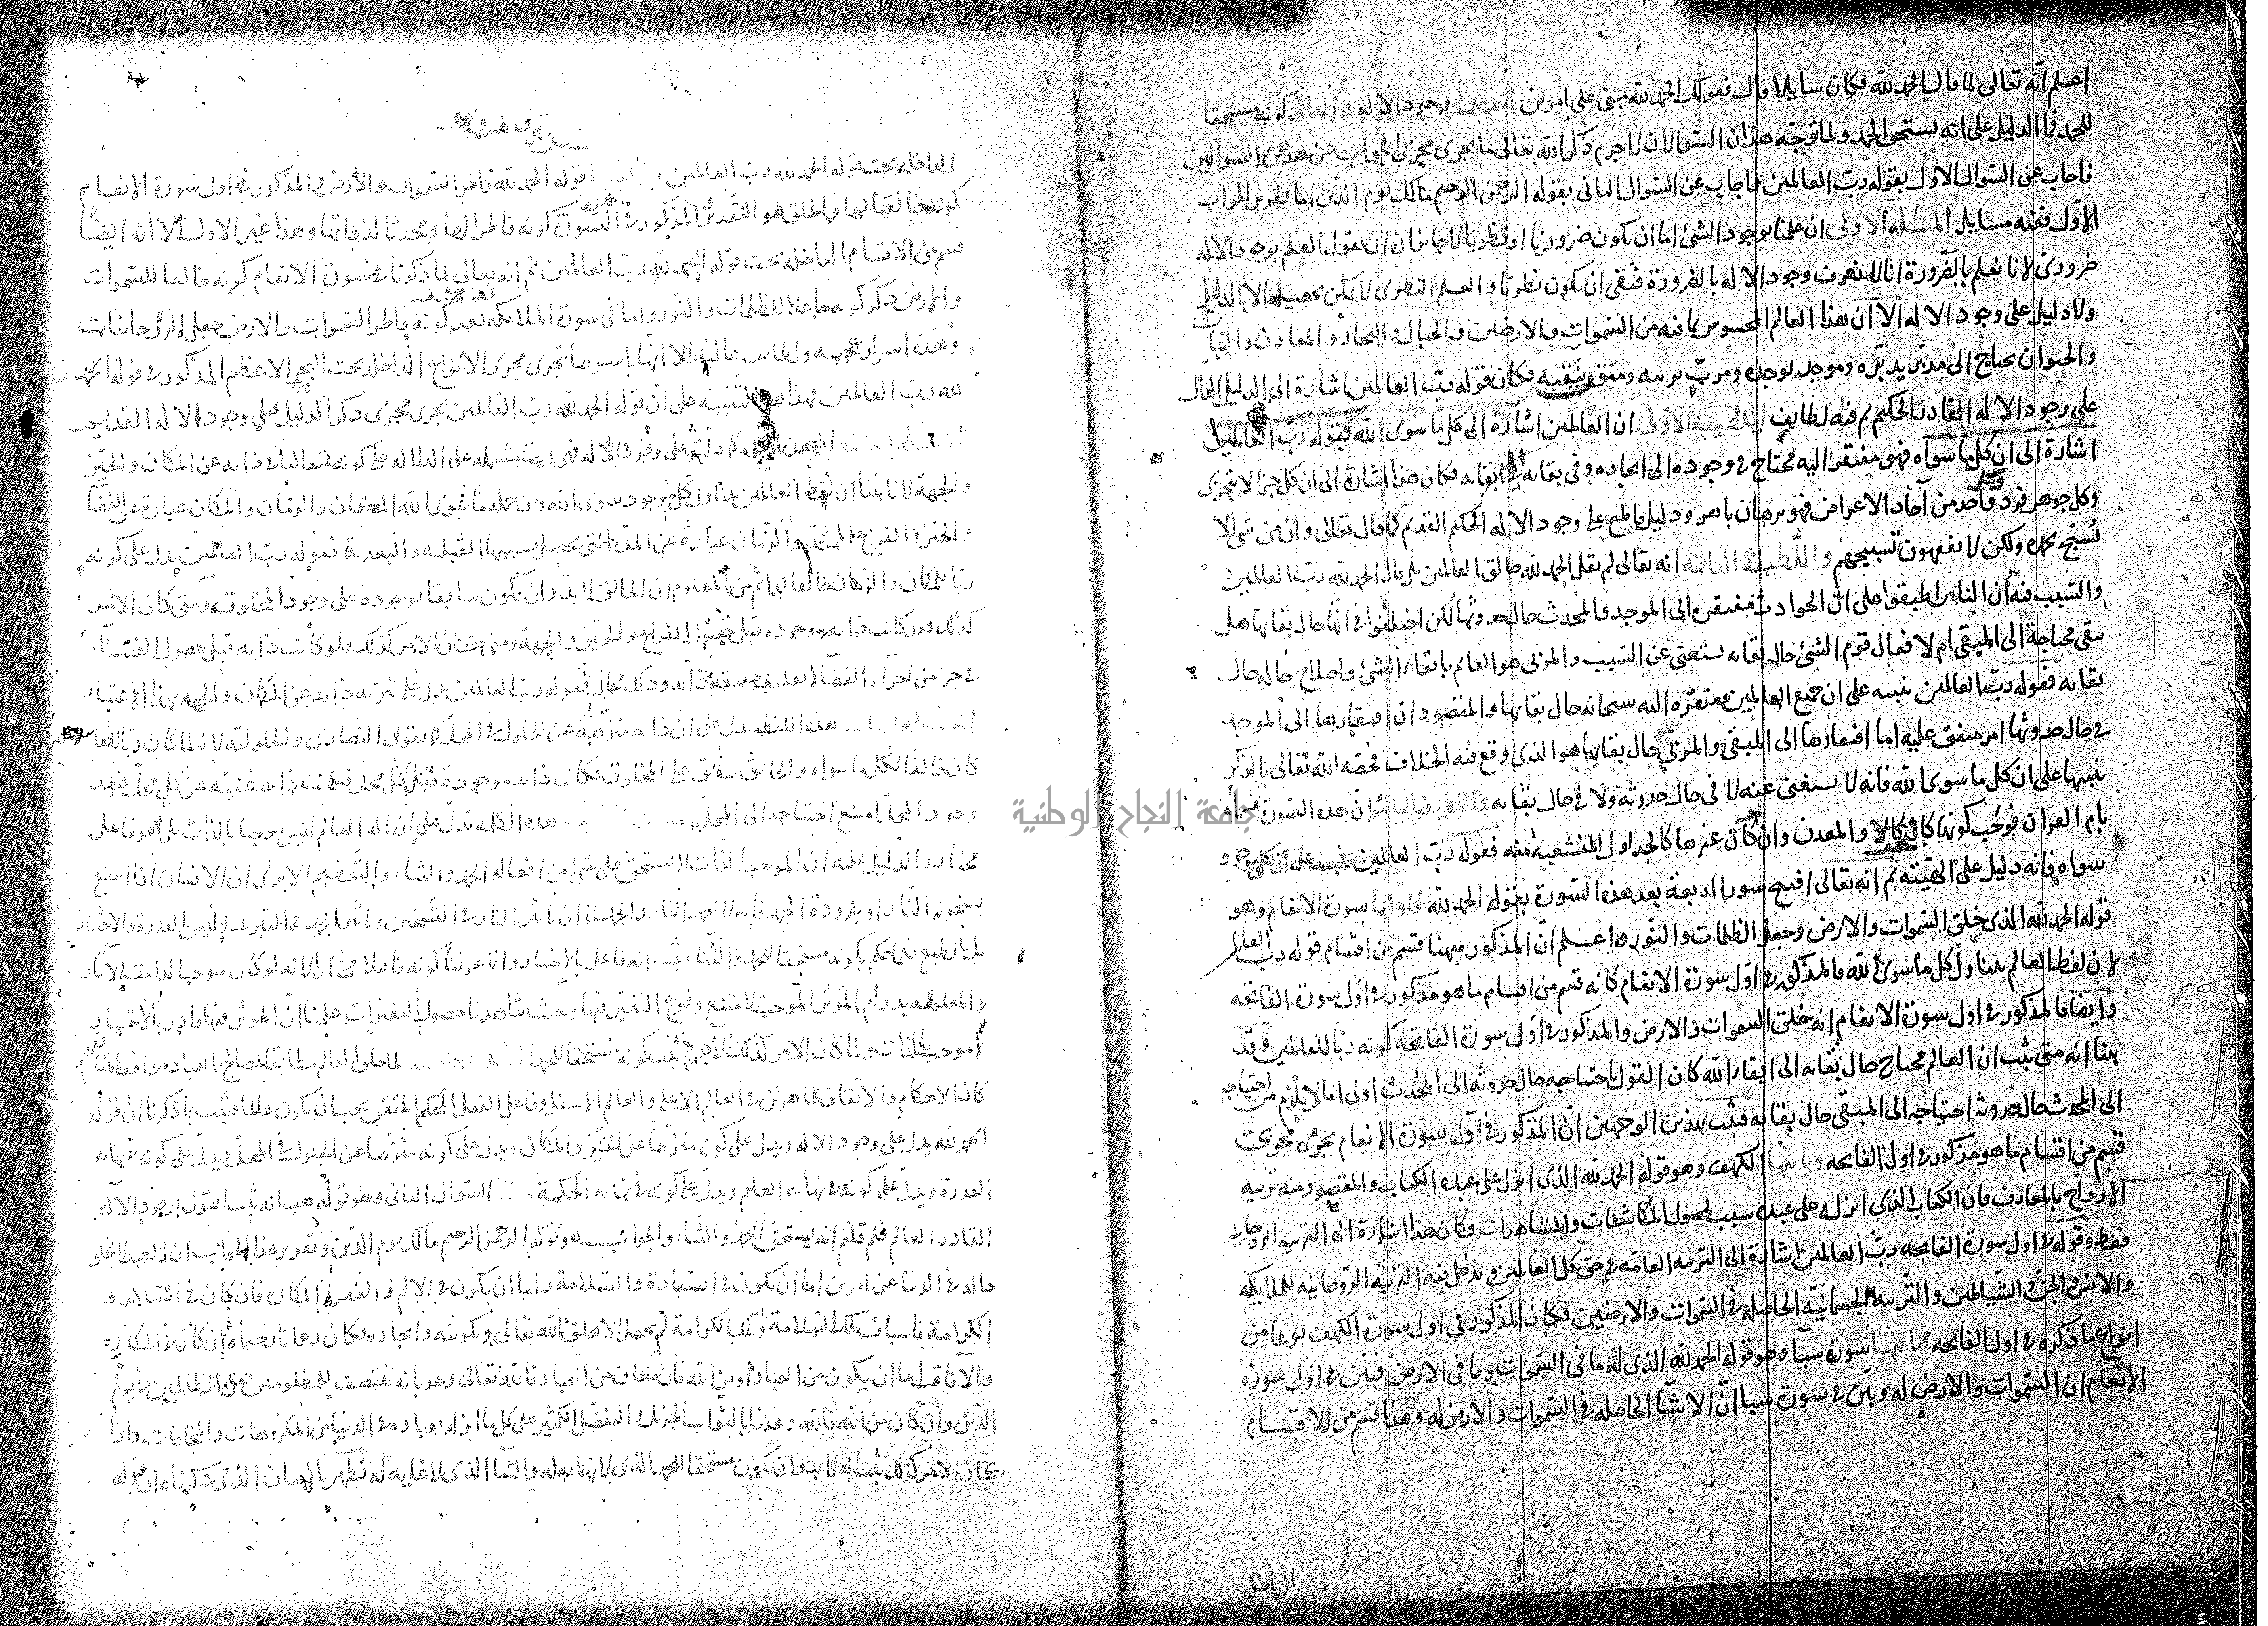 اعلم انه تعالى لما قال الحمد لله فكان سايلا قال فقولك الحمد لله مبنى على امرين احدهما وجود الاله والثانى كونه مستحقا
للحمد فما الدليل على انه يستحق الحمد ولما توجه هذان السؤالان لا جرم ذكر الله تعالى ما يجرى مجرى الجواب عن هذين السوالين
فاجاب عن السوال الاول بقوله رب العالمين واجاب عن السوال الثانى بقوله الرحمن الرحيم مالك يوم الدين اما تقرير الجواب
الاول ففيه مسايل المسئلة الاولى ان علمنا بوجود الشئ اما ان يكون ضروريا او نظريا لا جائز ان يقول العلم بوجود الاله
ضرورى لانا نعلم بالضرورة انا لا نعرف وجود الاله بالضرورة فبقى ان يكون نظريا والعلم النظرى لا يمكن تحصيله الا بالدليل
ولا دليل على وجود الاله الا ان هذا العالم المحسوس بما فيه من السموات والارضين والجبال والبحار والمعادن والنبات
والحيوان يحتاج الى مدبر يدبره وموجد يوجده ومرب يربيه ومبق يبقيه فكان قوله رب العالمين اشارة الى الدليل الدال
على وجود الاله القادر الحكيم ثم فيه لطايف اللطيفة الاولى ان العالمين اشارة الى كل ما سوى الله فقوله رب العالمين
اشارة الى ان كل ما سواه فهو مفتقر اليه محتاج فى وجوده الى ايجاده وفى بقائه الى ابقائه فكان هذا اشارة الى ان كل جزء لا يتجزى
وكل جوهر فرد وكل واحد من آحاد الاعراض فهو برهان باهر ودليل قاطع على وجود الاله الحكيم القديم كما قال تعالى وان من شئ الا
يسبح بحمده ولكن لا تفقهون تسبيحهم واللطيفة الثانية انه تعالى لم يقل الحمد لله خالق العالمين بل قال الحمد لله رب العالمين
والسبب فيه ان الناس اطبقوا على ان الحوادث مفتقرة الى الموجد والمحدث حال حدوثها لكن اختلفوا فى انها حال بقايها هل
تبقى محتاجة الى المبقى ام لا فقال قوم الشئ حال بقائه يستغنى عن السبب والمربى هو القائم بابقاء الشئ واصلاح حاله حال
بقائه فقوله رب العالمين تنبيه على ان جميع العالمين مفتقرة اليه سبحانه حال بقايها والمقصود ان افتقارها الى الموجد
فى حال حدوثها امر متفق عليه اما افتقارها الى المبقى والمربى حال بقايها هو الذى وقع فيه الخلاف فخصه الله تعالى بالذكر
تنبيها على ان كل ما سوى الله فانه لا يستغنى عنه لا فى حال حدوثه ولا فى حال بقائه واللطيفة الثالثة ان هذه السورة مسماة
بام القرآن فوجب كونها كالاصل والمعدن وان يكون غيرها كالجداول المتشعبة منه فقوله رب العالمين تنبيه على ان كل موجود
سواه فانه دليل على الهيته ثم انه تعالى افتتح سورا اربعة بعد هذه السورة بقوله الحمد لله فاولها سورة الانعام وهو
قوله الحمد لله الذى خلق السموات والارض وجعل الظلمات والنور واعلم ان المذكور هاهنا قسم من اقسام قوله رب العالم
لان لفظ العالم يتناول كل ما سوى الله فالمذكور فى اول سورة الانعام كانه قسم من اقسام ما هو مذكور فى اول سورة الفاتحة
وايضا فالمذكور فى اول سورة الانعام انه خلق السموات والارض والمذكور فى اول سورة الفاتحة كونه ربا للعالمين وقد
بينا انه متى ثبت ان العالم محتاج حال بقائه الى ابقاء الله كان القول باحتياجه حال حدوثه الى المحدث اولى اما لا يلزم من احتياجه
الى المحدث حال حدوثه احتياجه الى المبقى حال بقائه فثبت بهذين الوجهين ان المذكور فى اول سورة الانعام يجرى مجرى
قسم من اقسام ما هو مذكور فى اول الفاتحة وثانيها الكهف وهو قوله الحمد لله الذى انزل على عبده الكتاب والمقصود منه تربية
الارواح بالمعارف فان الكتاب الذى انزله على عبده سبب لحصول المكاشفات والمشاهدات فكان هذا اشارة الى التربية الروحانية
فقط وقوله فى اول سورة الفاتحة رب العالمين اشارة الى التربية العامة فى حق كل العالمين ويدخل فيه التربية الروحانية للملائكة
والانس والجن والشياطين والتربية الجسمانية الحاصلة فى السموات والارضين فكان المذكور فى اول سورة الكهف نوعا من
انواع ما ذكره فى اول الفاتحة وثالثها سورة سبأ وهو قوله الحمد لله الذى له ما فى السموات وما فى الارض فبين فى اول سورة
الانعام ان السموات والارض له وبين فى سورة سبا ان الاشيا الحاصلة فى السموات والارض له وهذا قسم من الاقسام
الداخله
جامعة النجاح الوطنية
سورة فاطر وهو
الداخلة تحت قوله الحمد لله رب العالمين ورابعها قوله الحمد لله فاطر السموات والارض والمذكور فى اول سورة الانعام
كونه خالقا لها والخلق هو التقدير والمذكور فى هذه السورة كونه فاطرا لها ومحدثا لذواتها وهذا غير الاول الا انه ايضا
قسم من الاقسام الداخلة تحت قوله الحمد لله رب العالمين ثم انه تعالى لما ذكر فى سورة الانعام كونه خالقا للسموات
والارض ذكر كونه جاعلا للظلمات والنور واما فى سورة الملائكة فبعد كونه فاطر السموات والارض جعل الروحانيات
وهذه اسرار عجيبه ولطايف عالية الا انها باسرها تجرى مجرى الانواع الداخلة تحت البحر الاعظم المذكور فى قوله الحمد
لله رب العالمين فهذا هو التنبيه على ان قوله الحمد لله رب العالمين يجرى مجرى ذكر الدليل على وجود الاله القديم
المسئلة الثانية ان هذه الكلمة كما دلت على وجود الاله فهى ايضا مشتملة على الدلالة على كونه متعاليا فى ذاته عن المكان والحيز
والجهة لانا بينا ان لفظ العالمين يتناول كل موجود سوى الله ومن جملة ما سوى الله المكان والزمان والمكان عبارة عن الفضا
والحيز والفراغ الممتد والزمان عبارة عن المدة التى يحصل بسببها القبلية والبعدية فقوله رب العالمين يدل على كونه
ربا للمكان والزمان خالقا لهما ثم من المعلوم ان الخالق لا بد وان يكون سابقا وجوده على وجود المخلوق ومتى كان الامر
كذلك فقد كانت ذاته موجودة قبل حصول الفراغ والحيز والجهة ومتى كان الامر كذلك فلو كانت ذاته قبل حصول الفضاء
فى جزء من اجزاء الفضا لانقلبت حقيقة ذاته وذلك محال فقوله رب العالمين يدل على تنزيه ذاته عن المكان والجهة بهذا الاعتبار
المسئلة الثالثة هذه اللفظة تدل على ان ذاته منزهة عن الحلول فى المحل كما يقول النصارى والحلولية لانه لما كان ربا للعالمين
كان خالقا لكل ما سواه والخالق سابق على المخلوق فكانت ذاته موجودة قبل كل محل فكانت ذاته غنية عن كل محل فبعد
وجود المحل امتنع احتياجه الى المحل هذه الكلمة تدل على ان اله العالم ليس موجبا بالذات بل هو فاعل
مختار والدليل عليه ان الموجب بالذات لا يستحق على شئ من افعاله الحمد والثناء والتعظيم الا ترى ان الانسان اذا انتفع
بسخونة النار او ببرودة الجمد فانه لا يحمد النار والجمد لما ان تاثير النار فى التسخين وتاثير الجمد فى التبريد ليس بالقدرة والاختيار
بل بالطبع فلما حكم بكونه مستحقا للحمد والثناء ثبت انه فاعل بالاختيار وانا عرفنا كونه فاعلا مختارا لانه لو كان موجبا لدامت الآثار
والمعلولات بدوام المؤثر الموجب ولامتنع وقوع التغير فيها وحيث شاهدنا حصول التغيرات علمنا ان المؤثر فيها قادر بالاختيار
لا موجب بالذات ولما كان الامر كذلك لا جرم ثبت كونه مستحقا للحمد المسئلة الخامسة لما خلق العالم مطابقا لمصالح العباد موافقا لمنافعهم
كان الاحكام والاتقان ظاهرين فى العالم الاعلى والعالم الاسفل وفاعل الفعل المحكم المتقن يجب ان يكون عالما فثبت بما ذكرنا ان قوله
الحمد لله يدل على وجود الاله ويدل على كونه منزها عن الحيز والمكان ويدل على كونه منزها عن الحلول فى المحل ويدل على كونه فى نهاية
القدرة ويدل على كونه فى نهاية العلم ويدل على كونه فى نهاية الحكمة السؤال الثانى وهو قوله هب انه ثبت القول بوجود الاله
القادر العالم فلم قلتم انه يستحق الحمد والثناء والجواب هو قوله الرحمن الرحيم مالك يوم الدين وتقرير هذا الجواب ان العبد لا يخلو
حاله فى الدنيا عن امرين اما ان يكون فى السعادة والسلامة واما ان يكون فى الالم والفقر والمكاره فان كان فى السلامة و
الكرامة فاسباب تلك السلامة وتلك الكرامة لم يحصل الا بخلق الله تعالى وتكوينه وايجاده فكان رحمانا رحيما وان كان فى المكاره
والآفات اما ان يكون من العباد او من الله فان كان من العباد فالله تعالى وعد بانه ينتصف للمظلومين من الظالمين فى يوم
الدين وان كان من الله فالله وعدنا بالثواب الجزيل والتفضل الكثير على كل ما انزله بعباده فى الدنيا من المكروهات والمخافات واذا
كان الامر كذلك ثبت انه لا بد وان يكون مستحقا للحمد الذى لا نهاية له والثنا الذى لا غاية له فظهر بالبيان الذى ذكرناه ان قوله